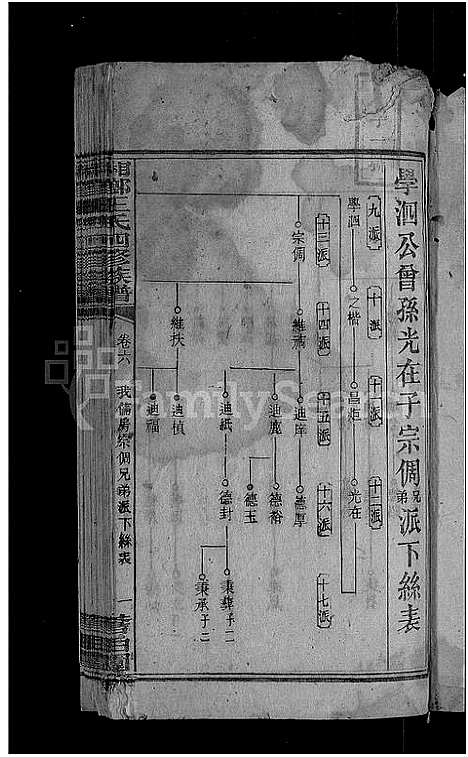 學泗公曾孫光在子宗倜兄弟派下絲表
九派
十派
十二派
學泗
之楷
昌炬
光在
十三派
十四派
十五派
十六派
十七派
宗倜
維禱
迪庠
德厚
迪
德裕
德玉
迪紙
德封
秉彝子二
秉承子二
維扶
迪楨
迪福
湘鄉王氏四修族譜
卷六
我儒房宗倜兄弟派下絲表
一
FamilySearch